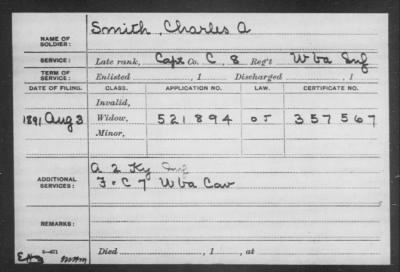 Smith, Charles A
NAME OF SOLDIER:
SERVICE: Late rank, Capt Co. C, 8 Reg't W Va Inf
TERM OF SERVICE: Enlisted , 1 Discharged , 1
DATE OF FILING. CLASS. APPLICATION NO. LAW. CERTIFICATE NO.
Invalid,
1891 Aug 3 Widow, 521894 357567
Minor,
ADDITIONAL SERVICES: A 2 Ky Inf
F. C 7 W Va Cav
REMARKS:
Died , 1 , at